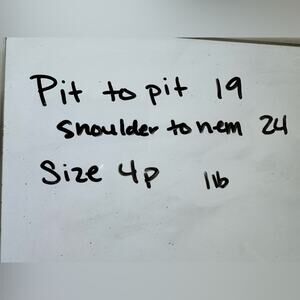 Pit to pit 19
shoulder to hem 24
Size 4p 1lb